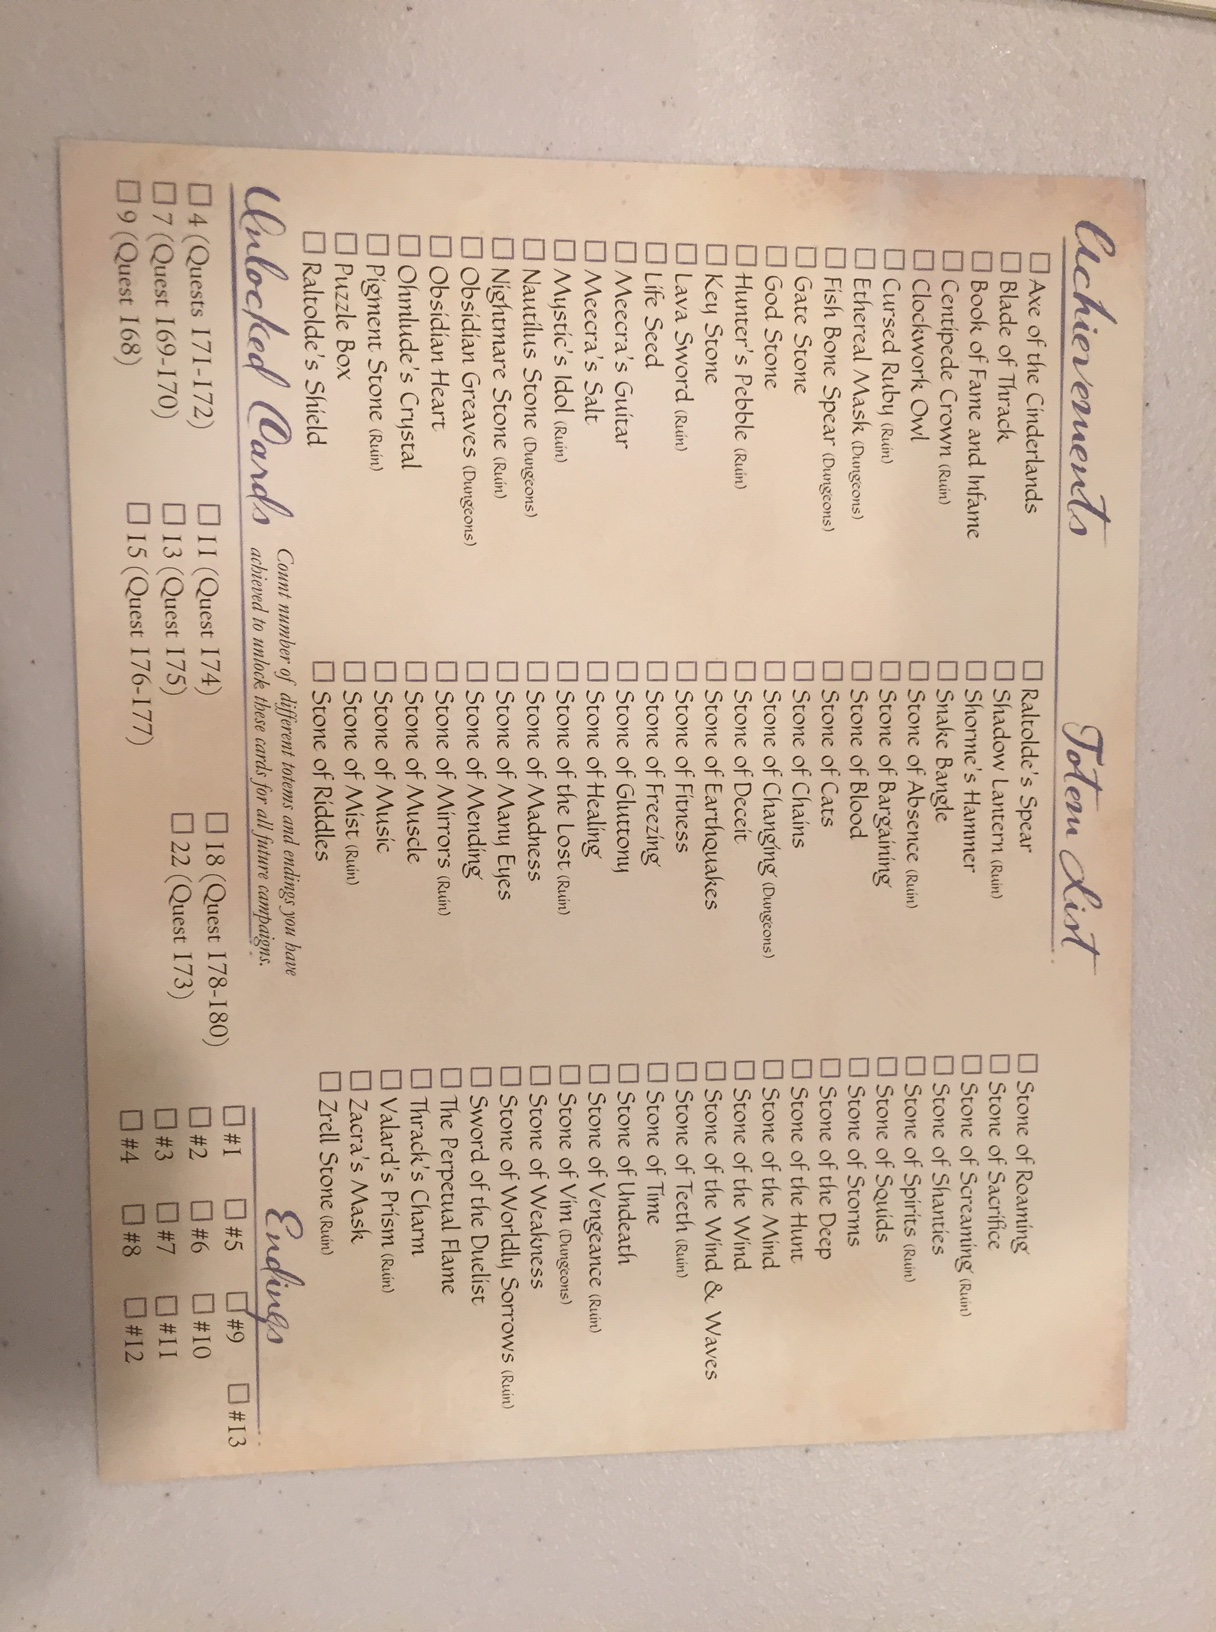 Achievements
Totem List
Axe of the Cinderlands
Blade of Thrack
Book of Fame and Infame
Centipede Crown (Ruin)
Clockwork Owl
Cursed Ruby (Ruin)
Ethereal Mask (Dungeons)
Fish Bone Spear (Dungeons)
Gate Stone
God Stone
Hunter's Pebble (Ruin)
Key Stone
Lava Sword (Ruin)
Life Seed
Meecra's Guitar
Meecra's Salt
Mystic's Idol (Ruin)
Nautilus Stone (Dungeons)
Nightmare Stone (Ruin)
Obsidian Greaves (Dungeons)
Obsidian Heart
Ohmlude's Crystal
Pigment Stone (Ruin)
Puzzle Box
Raltolde's Shield
Raltolde's Spear
Shadow Lantern (Ruin)
Shorne's Hammer
Snake Bangle
Stone of Absence (Ruin)
Stone of Bargaining
Stone of Blood
Stone of Cats
Stone of Chains
Stone of Changing (Dungeons)
Stone of Deceit
Stone of Earthquakes
Stone of Fitness
Stone of Freezing
Stone of Gluttony
Stone of Healing
Stone of the Lost (Ruin)
Stone of Madness
Stone of Many Eyes
Stone of Mending
Stone of Mirrors (Ruin)
Stone of Muscle
Stone of Music
Stone of Mist (Ruin)
Stone of Riddles
Stone of Roaming
Stone of Sacrifice
Stone of Screaming (Ruin)
Stone of Shanties
Stone of Spirits (Ruin)
Stone of Squids
Stone of Storms
Stone of the Deep
Stone of the Hunt
Stone of the Mind
Stone of the Wind
Stone of the Wind & Waves
Stone of Teeth (Ruin)
Stone of Time
Stone of Undeath
Stone of Vengeance (Ruin)
Stone of Vim (Dungeons)
Stone of Weakness
Stone of Worldly Sorrows (Ruin)
Sword of the Duelist
The Perpetual Flame
Thrack's Charm
Valard's Prism (Ruin)
Zacra's Mask
Zrell Stone (Ruin)
Unlocked Cards
Count number of different totems and endings you have
achieved to unlock these cards for all future campaigns.
4 (Quests 171-172)
7 (Quest 169-170)
9 (Quest 168)
11 (Quest 174)
13 (Quest 175)
15 (Quest 176-177)
18 (Quest 178-180)
22 (Quest 173)
Endings
#1
#2
#3
#4
#5
#6
#7
#8
#9
#10
#11
#12
#13